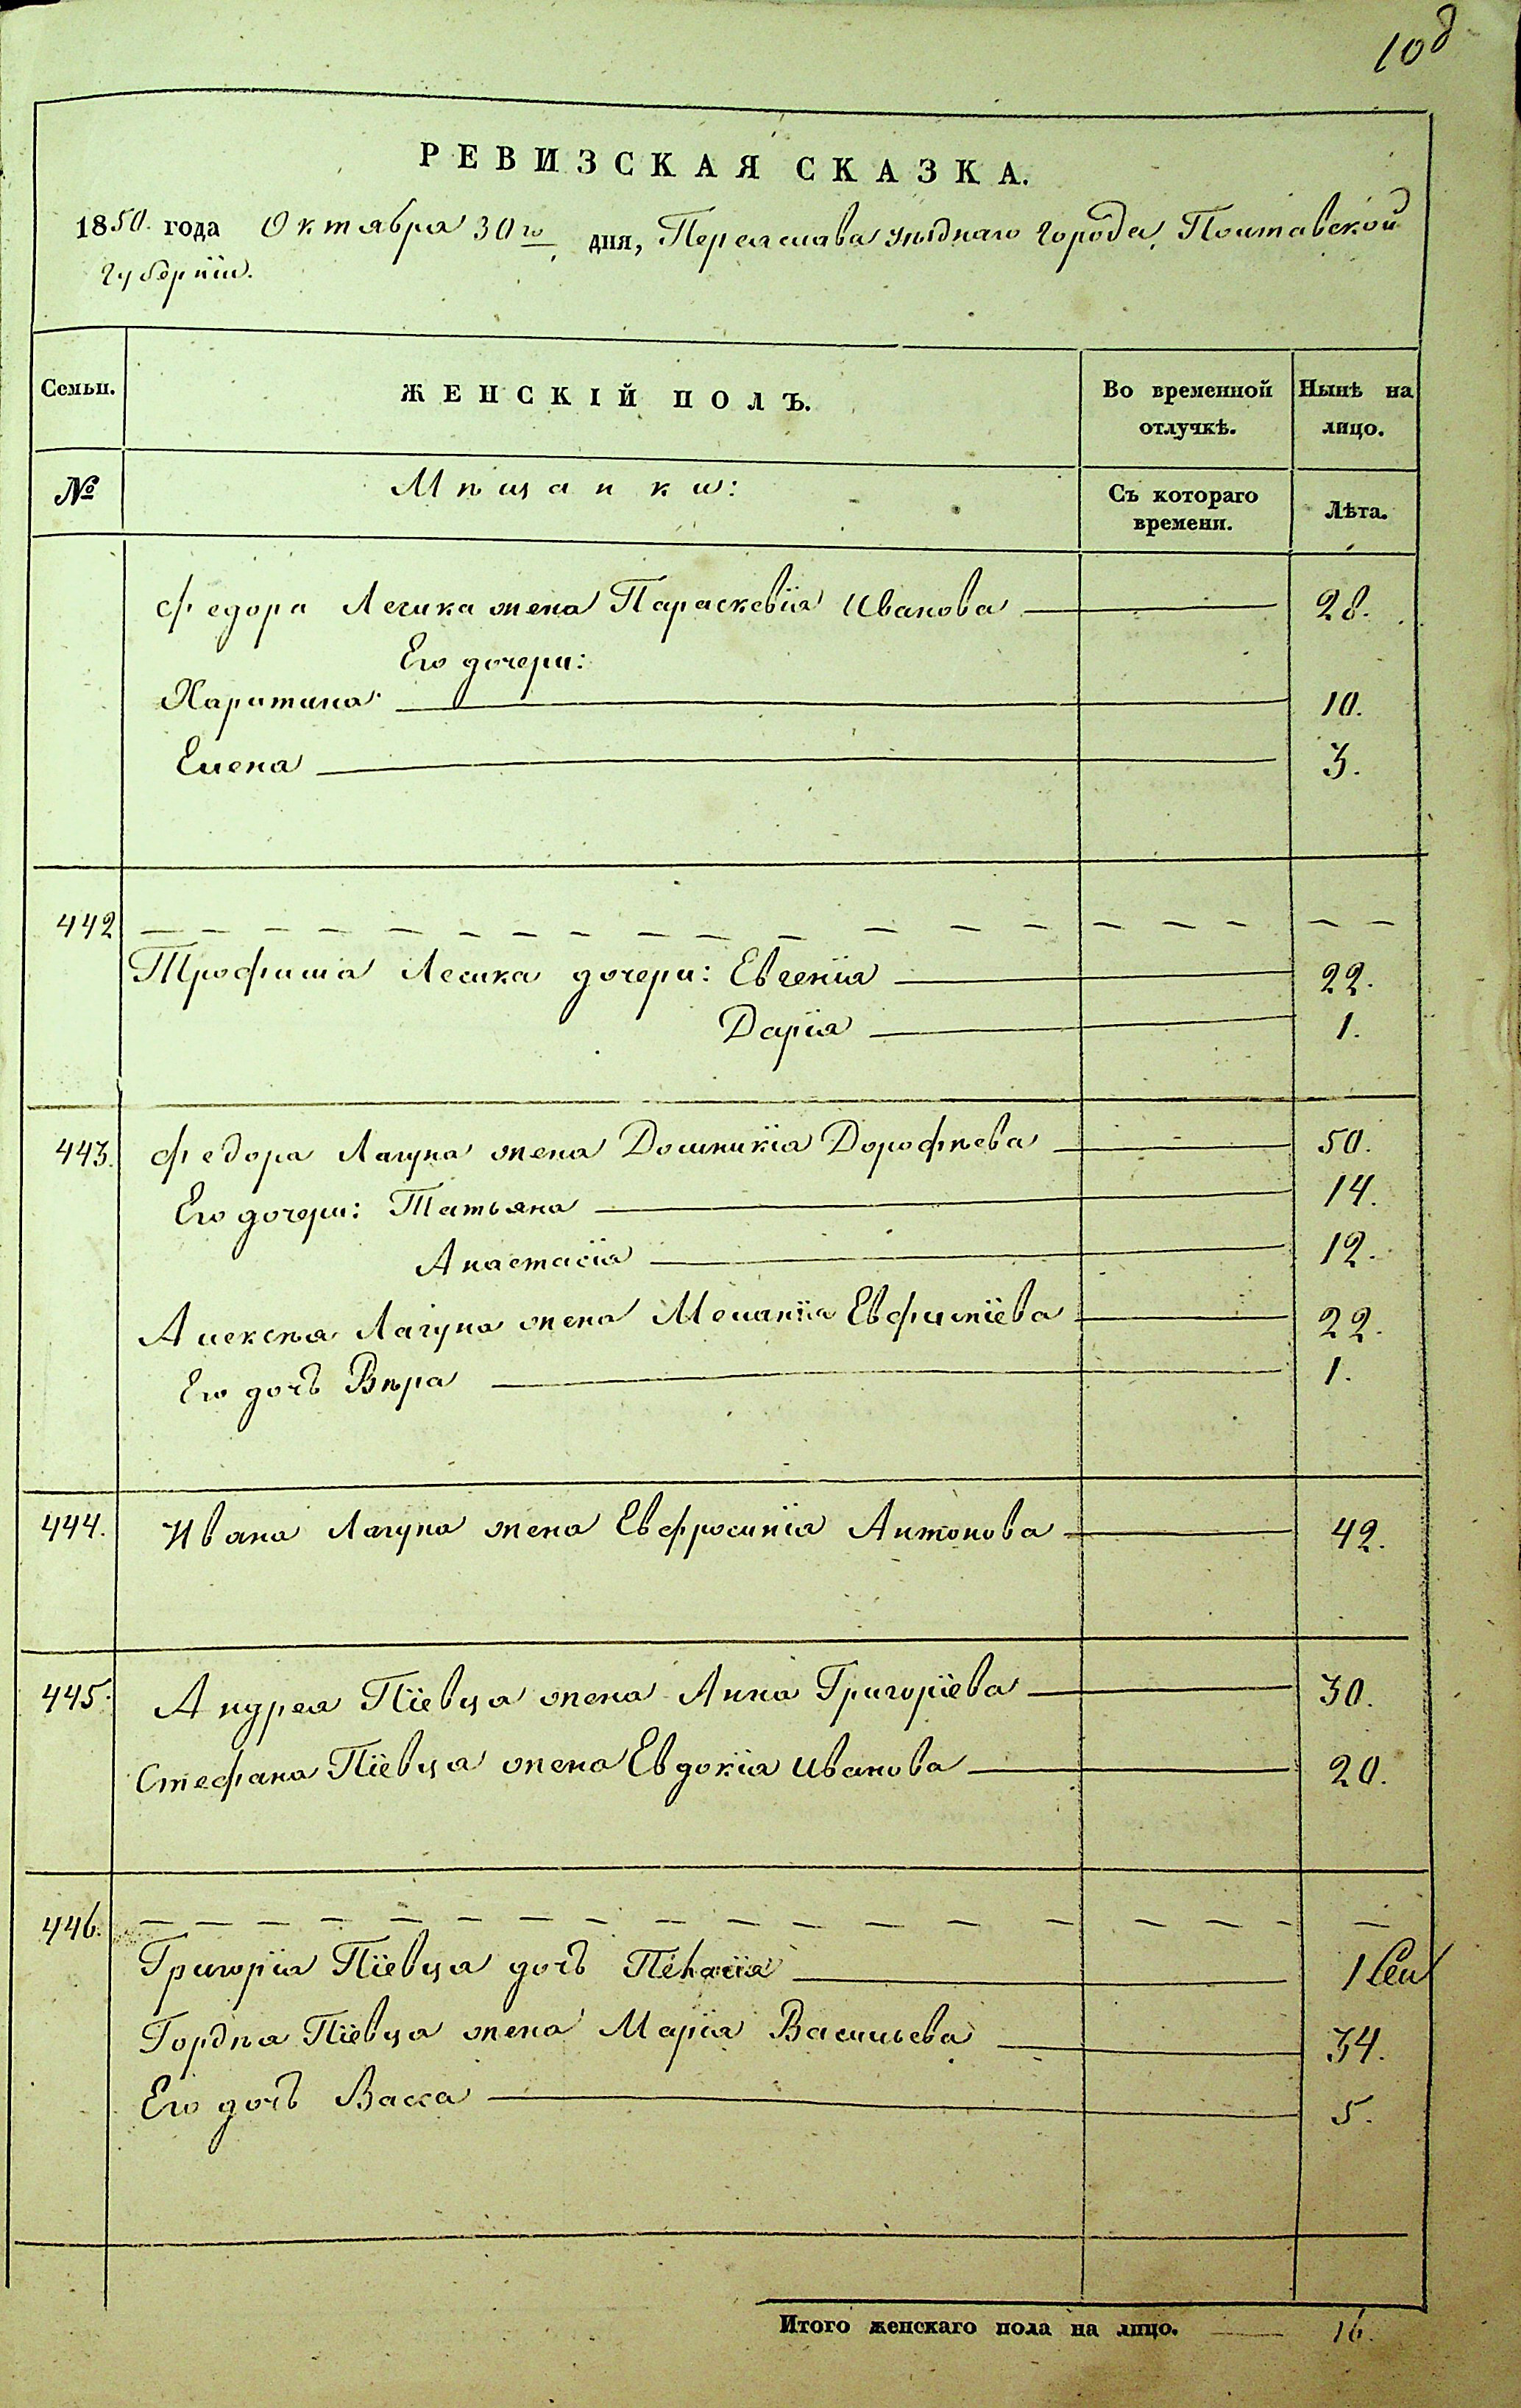 108
РЕВИЗСКАЯ СКАЗКА.
1850. года Октября 30го дня, Переяслава уѣзднаго города, Полтавской
губерніи.
Семьи. ЖЕНСКІЙ ПОЛЪ. Во временной отлучкѣ. Нынѣ на лицо.
№ Мѣщанки: Съ котораго времени. Лѣта.
Федора жена Параскевія Иванова 28.
Его дочери:
Харитина 10.
Елена 3.
442
Трофима дочери: Евгенія 22.
Дарія 1.
443. Федора Лагуна жена Домникія Дорофѣева 50.
Его дочери: Татьяна 14.
Анастасія 12.
Алексѣя Лагуна жена Меланія Евфиміева 22.
Его дочь Вѣра 1.
444. Ивана Лагуна жена Евфросинія Антонова 42.
445. Андрея Піевца жена Анна Григоріева 30.
Стефана Піевца жена Евдокія Иванова 20.
446.
Григорія Піевца дочь 1
Гордѣя Піевца жена Марія Васильева 34.
Его дочь Васса 5.
Итого женскаго пола на лицо. 16.